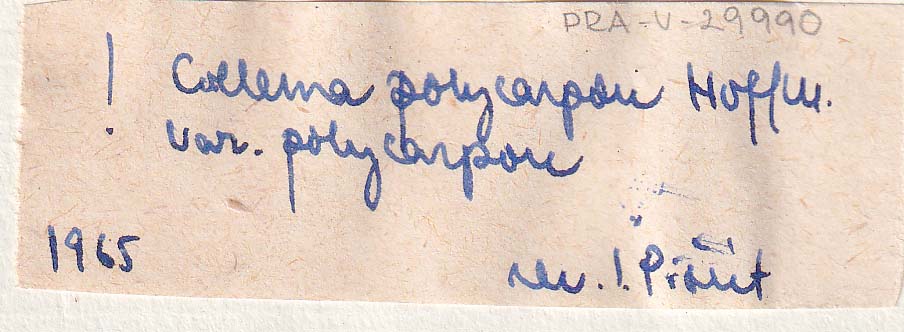 PRA-V-29990
! Collema polycarpon Hoffm.
var. polycarpon
1965
rev. I. Pišút